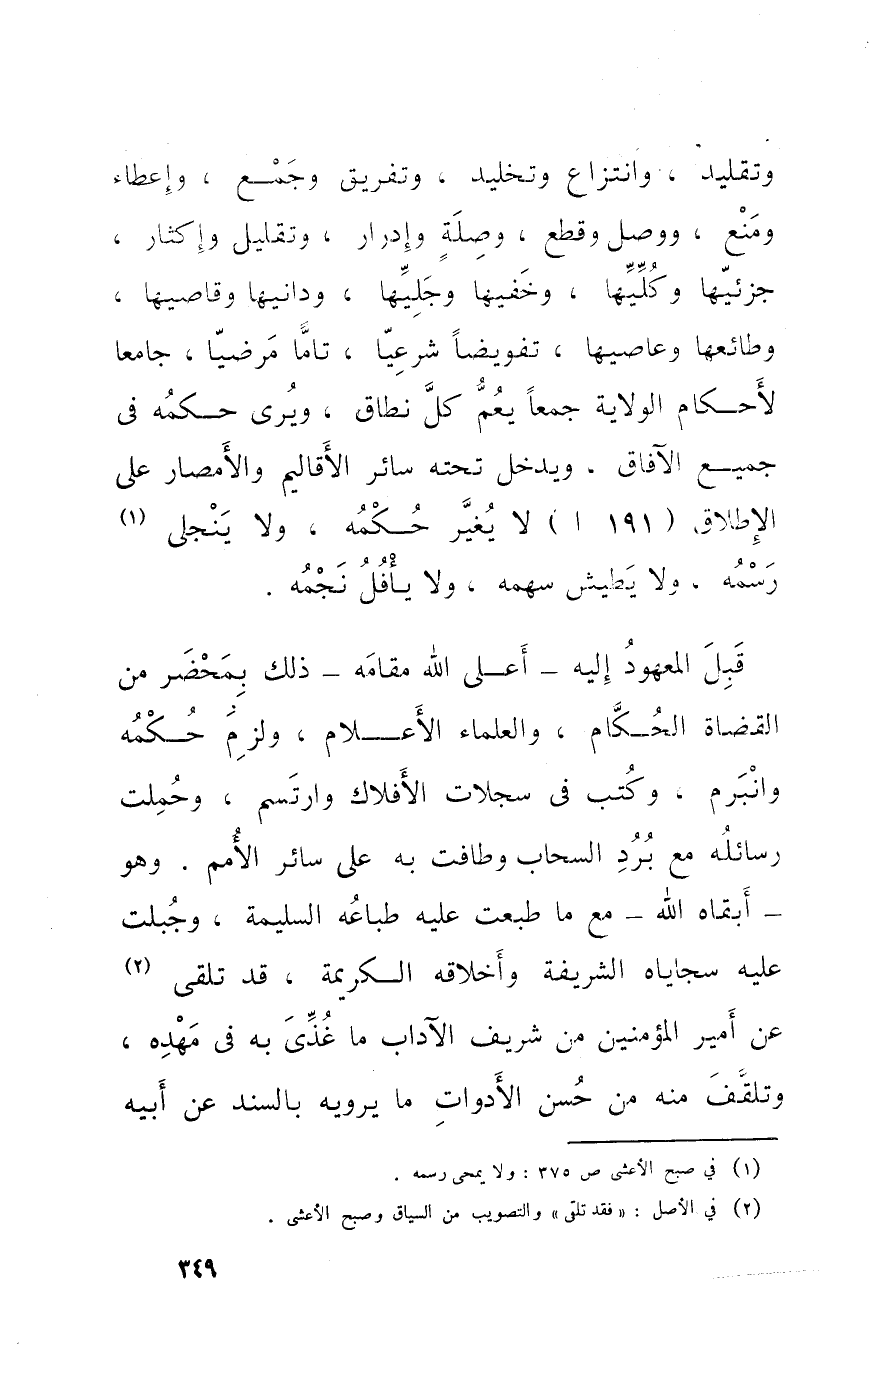 وتقليد ، وانتزاع وتخليد ، وتفريق وجَمْع ، وإعطاء
ومَنْع ، ووصل وقطع ، وصِلَةٍ وإدرار ، وتقليل وإكثار ،
جزئيّها وكُلِّيِّها ، وخَفيها وجَلِيِّها ، ودانيها وقاصيها ،
وطائعها وعاصيها ، تفويضاً شرعيّا ، تامًّا مَرضيّا ، جامعا
لأَحكام الولاية جمعاً يعُمُّ كلَّ نطاق ، ويُرى حكمُه فى
جميع الآفاق . ويدخل تحته سائر الأَقاليم والأَمصار على
الإِطلاق ( ١٩١ ا ) لا يُغيَّر حُكْمُه ، ولا يَنْجلى (١)
رَسْمُه . ولا يَطيش سهمه ، ولا يأْفُلُ نَجْمُه .
قَبِلَ المعهودُ إليه – أَعلى الله مقامَه – ذلك بِمَحْضَر من
القضاة الحُكَّام ، والعلماء الأَعلام ، ولزِمَ حُكْمُه
وانْبَرم ، وكُتب فى سجلات الأَفلاك وارتَسم ، وحُمِلت
رسائلُه مع بُرُدِ السحاب وطافت به على سائر الأُمم . وهو
– أَبقاه الله – مع ما طبعت عليه طباعُه السليمة ، وجُبلت
عليه سجاياه الشريفة وأَخلاقه الكريمة ، قد تلقى (٢)
عن أَمير المؤمنين من شريف الآداب ما غُذِّىَ به فى مَهْدِه ،
وتلقَّفَ منه من حُسن الأَدواتِ ما يرويه بالسند عن أَبيه
(١) في صبح الأعشى ص ٣٧٥ : ولا يمحى رسمه .
(٢) في الأصل : « فقد تلقى » والتصويب من السياق وصبح الأعشى .
٣٤٩